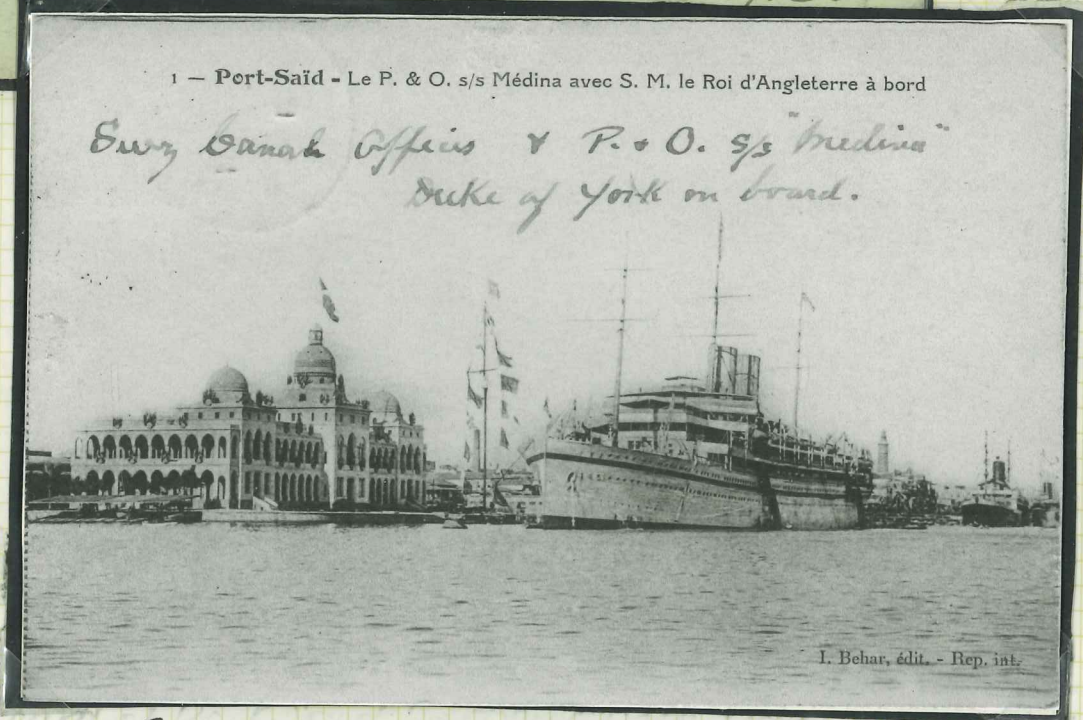 1 — Port-Saïd - Le P. & O. s/s Médina avec S. M. le Roi d'Angleterre à bord
Suez Canal Offices & P. & O. S/s "Medina"
Duke of York on board.
I. Behar, édit. - Rep. int.